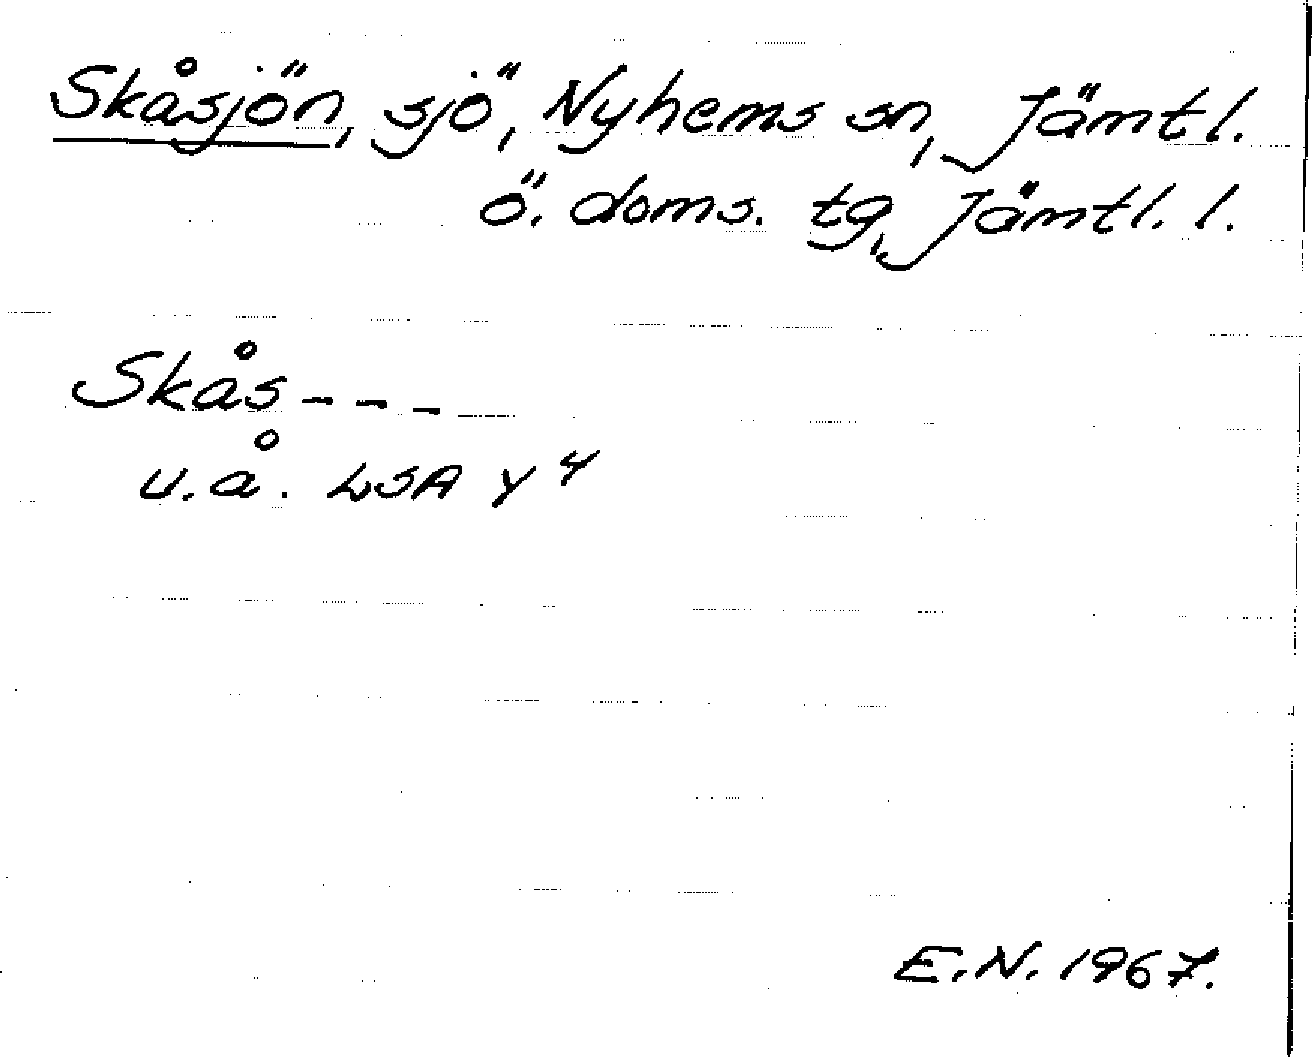 Skåsjön, sjö, Nyhems sn, Jämtl.
ö. doms. tg, Jämtl. l.
Skås----
u.å. LSA Y 4
E.N. 1967.